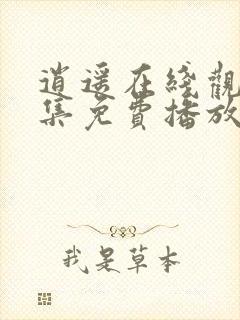 逍遥在綫觀
集免費播放
我是草本